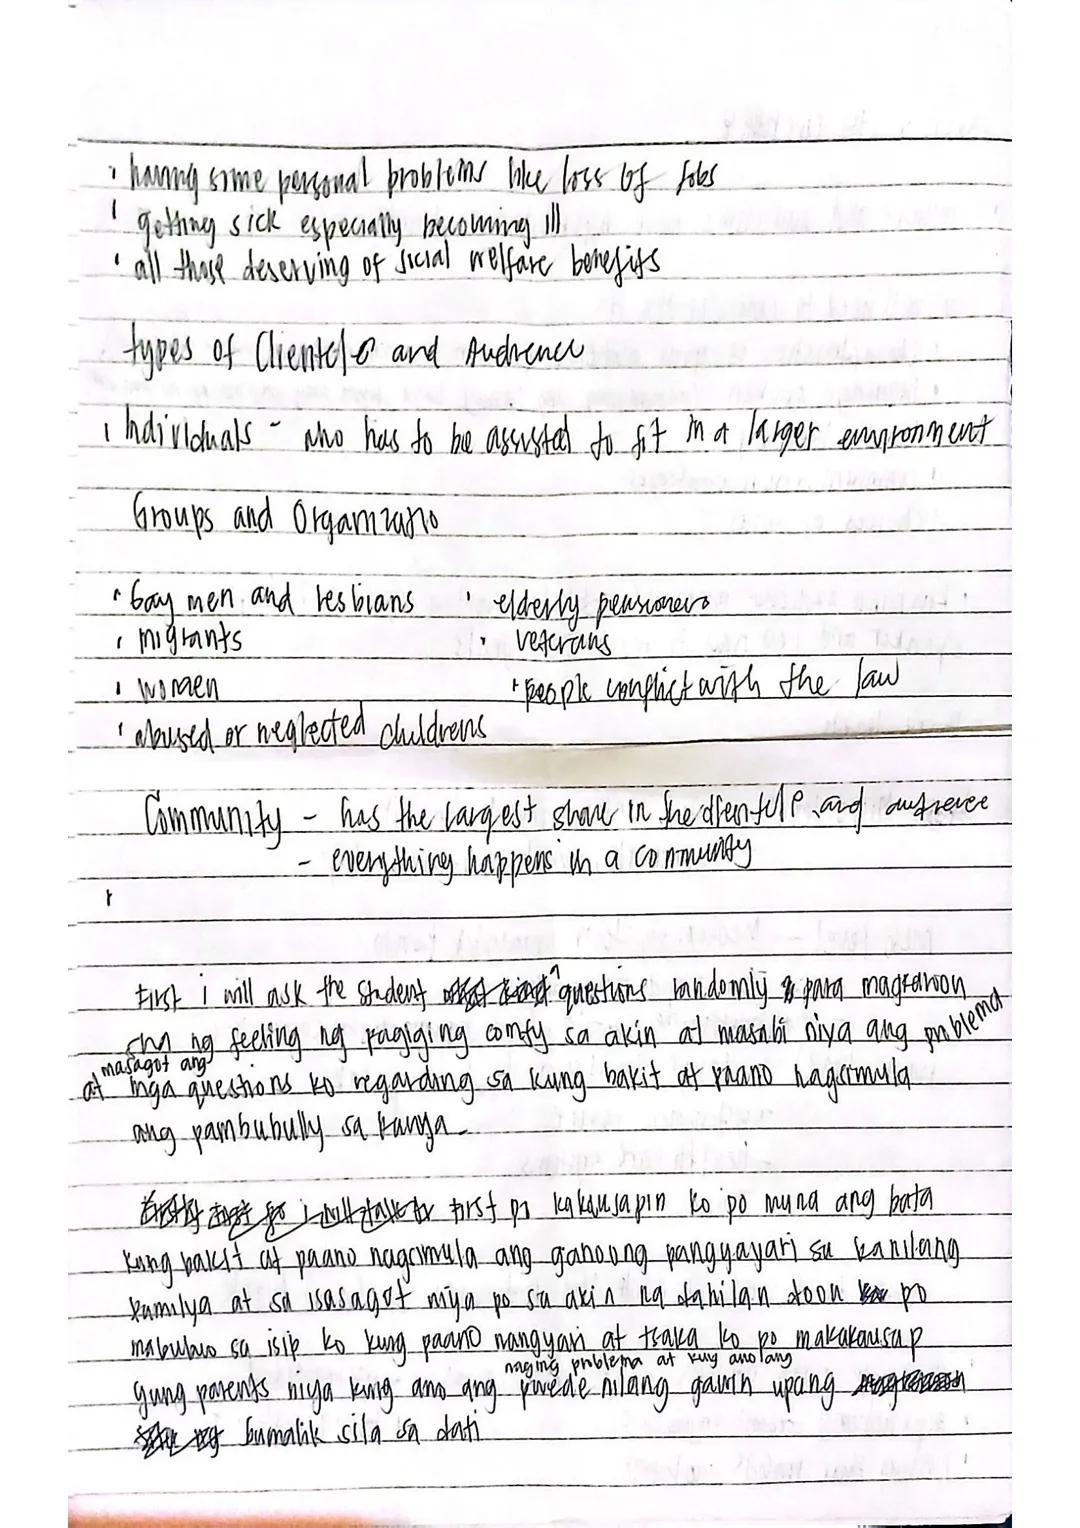 • having some personal problems like loss of jobs
• getting sick especially becoming ill
• all those deserving of social welfare benefits
types of Clientele and Audience
• Individuals - who has to be assisted to fit in a larger environment
Groups and Organizatio
• Gay men and lesbians • elderly pensioners
• migrants • veterans
• women • people conflict with the law
• abused or neglected childrens
Community - has the largest share in the clientele and audience
- everything happens in a community
First i will ask the student questions randomly para magkaroon
sha ng feeling ng pagiging comfy sa akin at masabi niya ang problema
at masagot ang mga questions ko regarding sa kung bakit at paano nagsimula
ang pambubully sa kanya.
First po kakausapin ko po muna ang bata
kung bakit at paano nagsimula ang ganoong pangyayari sa kanilang
pamilya at sa isasagot niya po sa akin na dahilan doon po
mabubuo sa isip ko kung paano nangyari at tsaka ko po makakausap
yung parents niya kung ano ang naging problema at kung ano ang pwede nilang gawin upang
bumalik sila sa dati